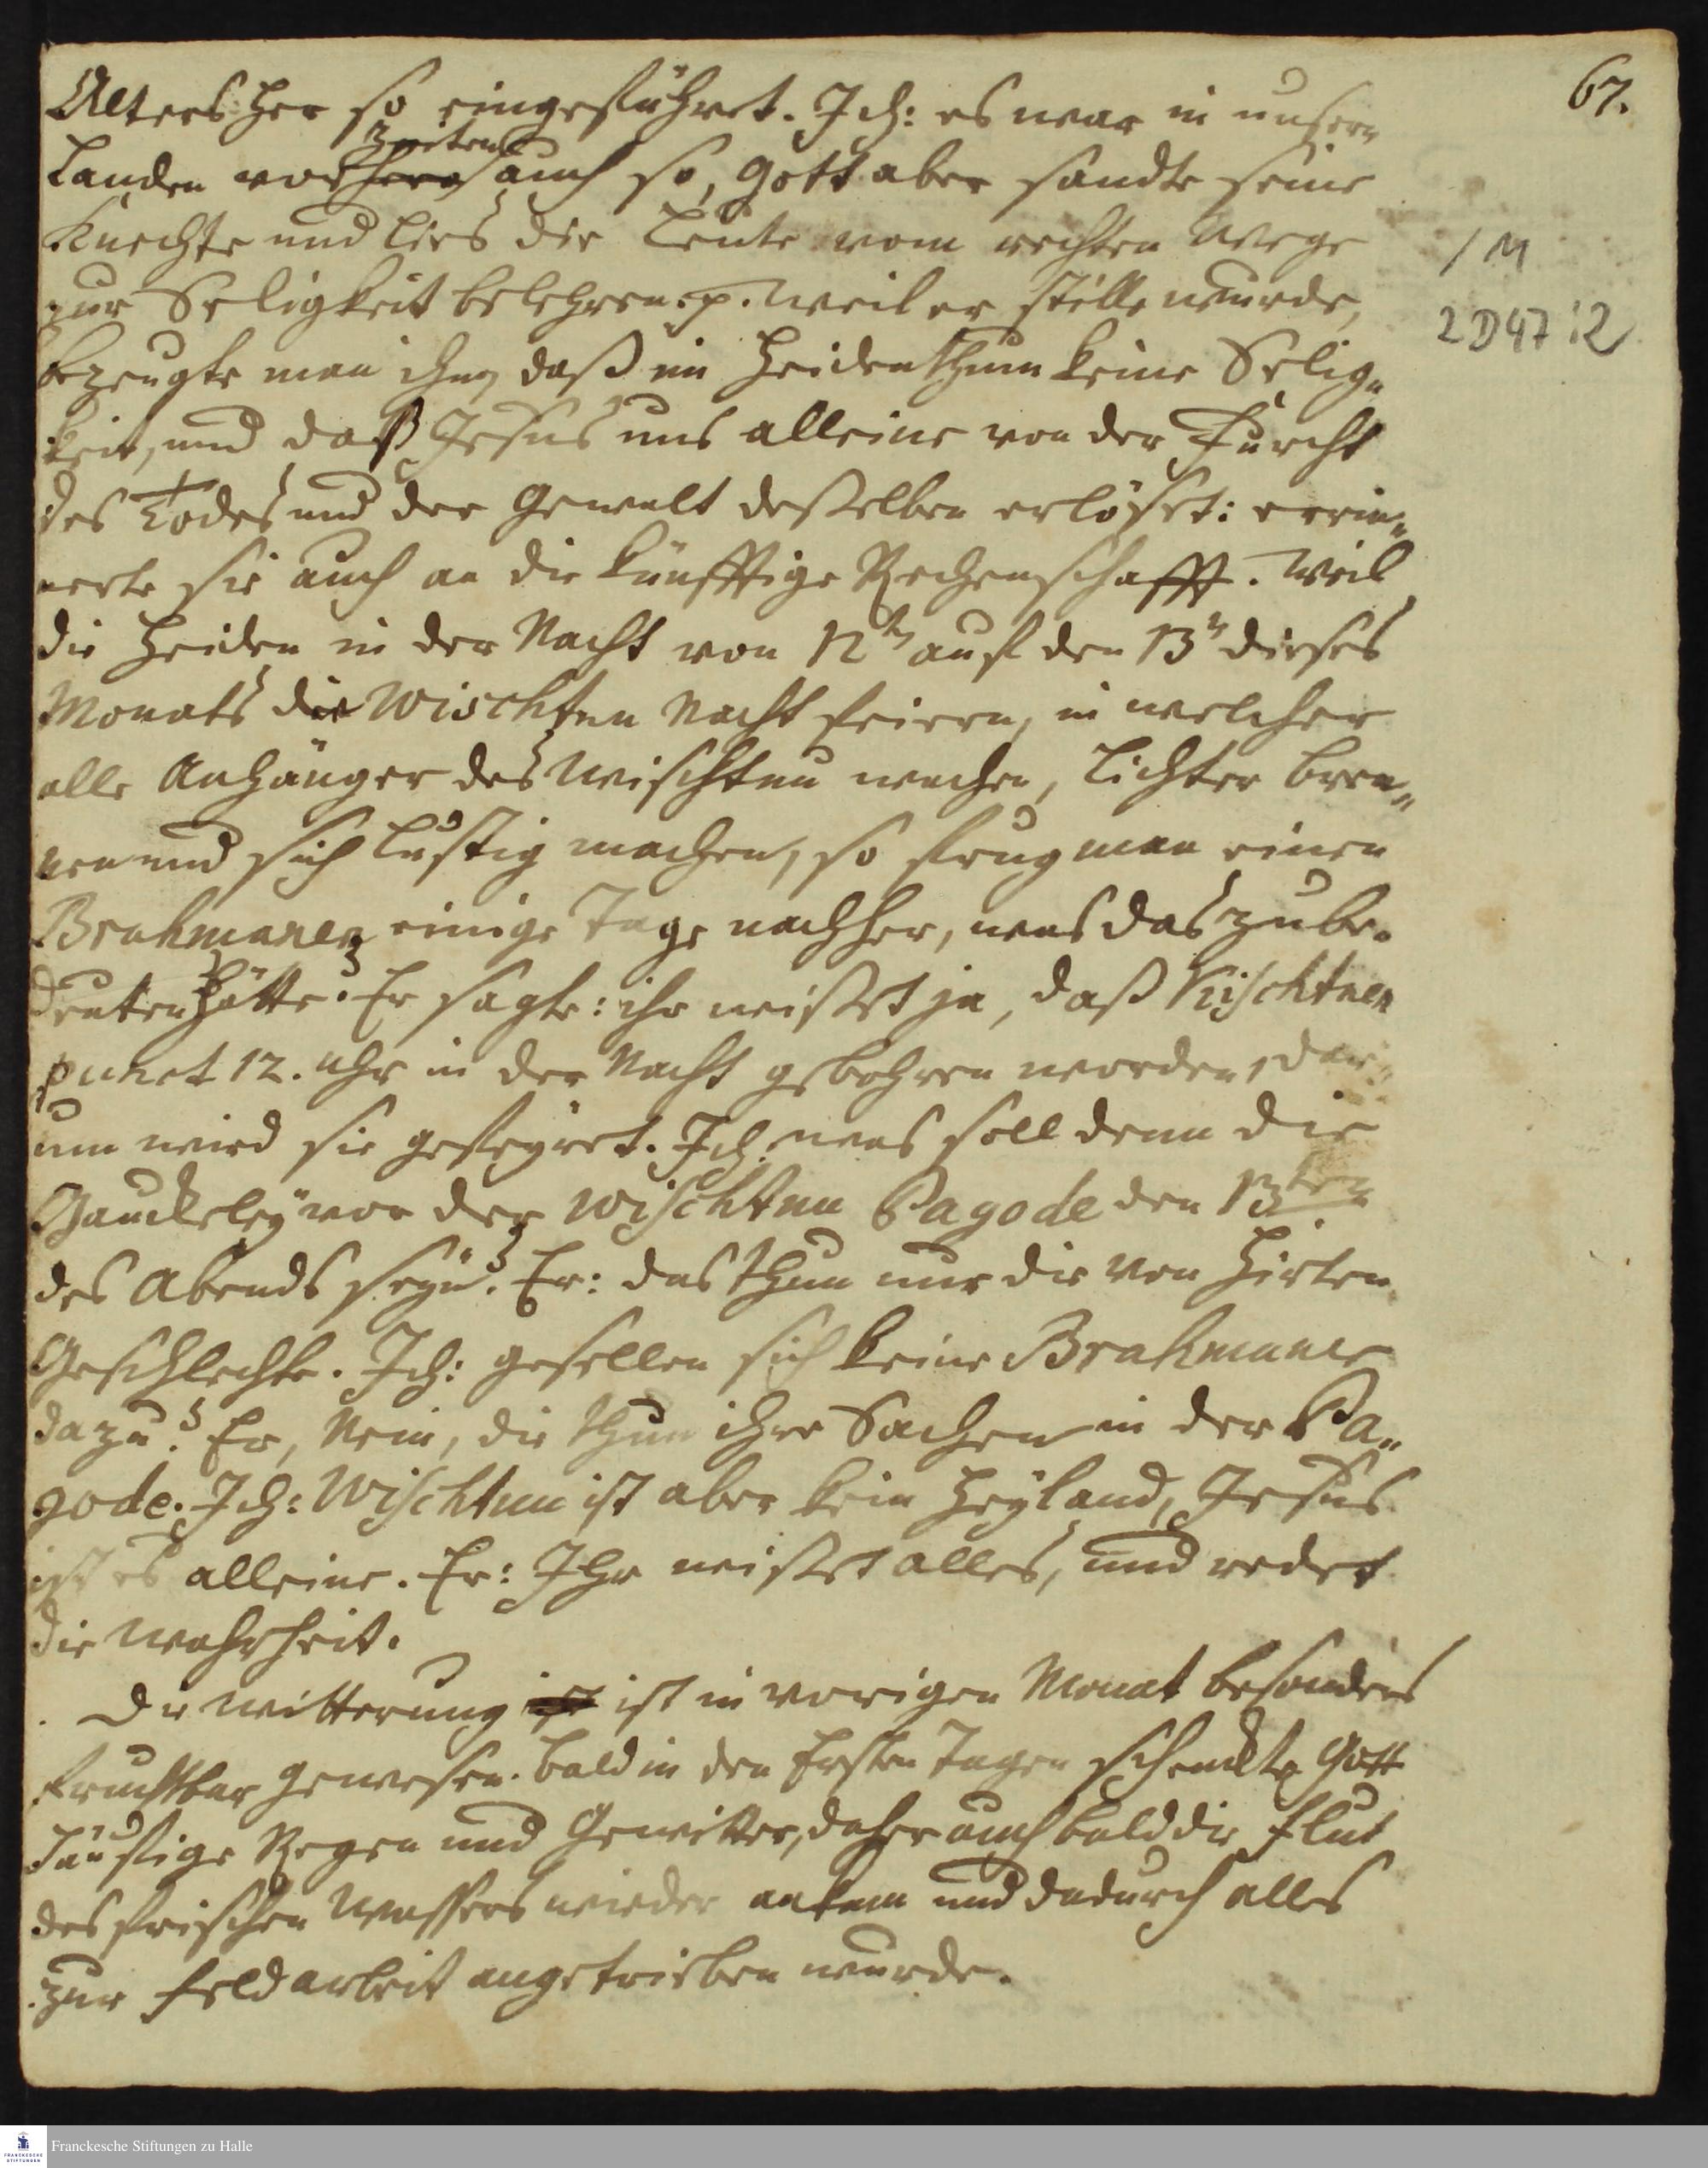 67.
Alters her so eingeführet. Ich: es war in unsern
Zeiten
Landen vor hero auch so, Gott aber sandte seine
Knechte und lies die Leute vom rechten Wege
zur Seligkeit belehren. p. Weil er stille wurde,
bezeugte man ihm, daß im Heidenthum keine Selig„
keit, und daß Jesus uns alleine von der Furcht
des Todes und der Gewalt deßelben erlöset: errin„
nerte sie auch an die künfftige Rechenschafft. Weil
die Heiden in der Nacht von 12tn auf den 13n dieses
Monats die Wischtnu Nacht feiern, in welcher
alle Anhänger des Wischtnu wachen, Lichter bren„
nen und sich lustig machen, so frug man einen
Brahmanen einige Tage nachher, was das zu be„
deuten hätte? Er sagte: ihr wißet ja, daß Kischtnen
punct 12. Uhr in der Nacht gebohren worden, dar„
um wird sie gefeyret. Ich, was soll denn die
Gauckeley vor der Wischtnu Pagode den 13ten
des Abends seyn? Er: das thun nur die von Hirten
Geschlechte. Ich: gesellen sich keine Brahmaner
dazu? Er, Nein, die thun ihre Sachen in der Pa„
gode. Ich: Wischtnu ist aber kein Heyland, Jesus
ist es alleine. Er: Ihr wißet alles, und redet
die Wahrheit.
Die Witterung ist ist in vorigen Monat besonders
fruchtbar gewesen. bald in den Ersten Tagen schenckte Gott
häufige Regen und Gewitter, daher auch bald die Flut
des frischen Waßers wieder ankam und dadurch alles
zur Feldarbeit angetrieben wurde.
1 M
2 D 47 : 2
FRANCKESCHE STIFTUNGEN
Franckesche Stiftungen zu Halle